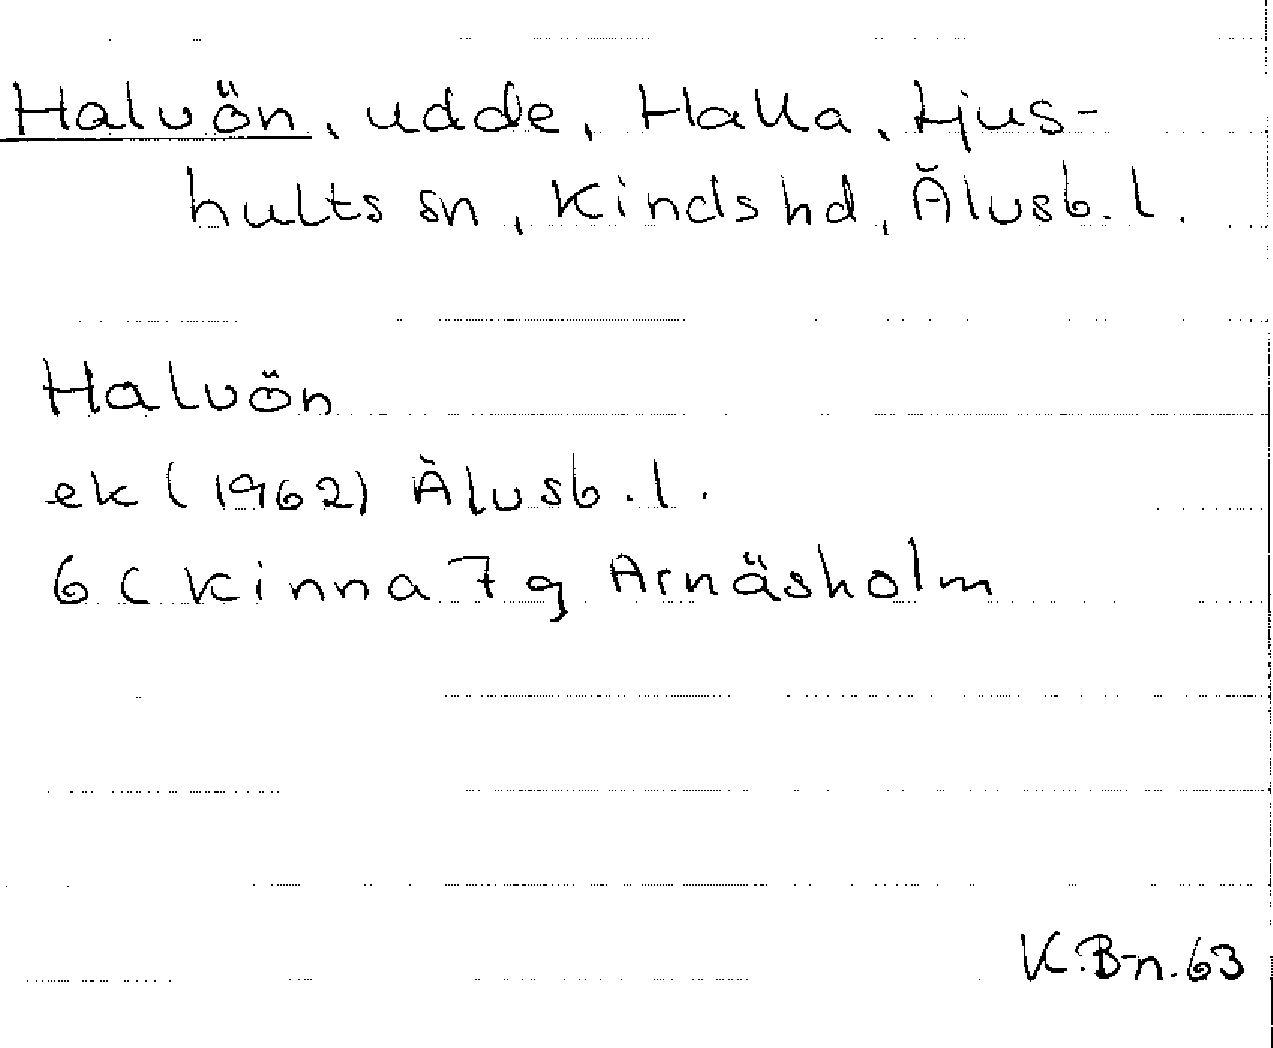 Halvön, udde, Halla, Ljus-
hults sn, Kinds hd, Älvsb. l.
Halvön
ek (1962) Älvsb. l.
6 C Kinna 7 g Arnäsholm
K.B-n.63